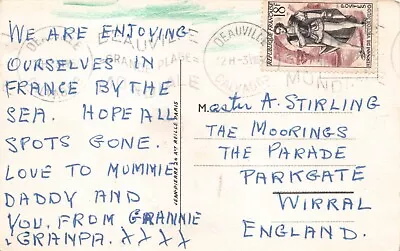 WE ARE ENJOYING
OURSELVES IN
FRANCE BY THE
SEA. HOPE ALL
SPOTS GONE.
LOVE TO MUMMIE
DADDY AND
YOU. FROM GRANNIE
GRANPA. XXXX
DEAUVILLE
DEAUVILLE
CALVADOS
Master A. STIRLING
THE MOORINGS
THE PARADE
PARKGATE
WIRRAL
ENGLAND.